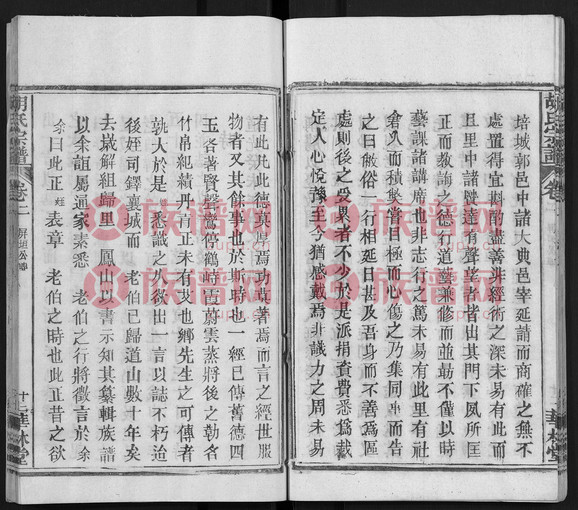 培城郭邑中諸大典邑宰延請而商確之無不
處置得宜料南盡善非經術之深未易有此而
中里中諸賢達有聲望者皆出其門下夙所匡
正而教誨之行德行道藝兼修而並勖不僅以時
藝課諸講席也非志行之篤未易有此里有社
倉久而積獎詹目極而心傷之乃集同事而告
之曰倣俗一行相延日甚及吾身而不善為區
處則後之受累者不少於是派捐資費悉為裁
定人心悅豫至今猶感戴焉非識力之周未易
有此凡此德真厚焉功真著焉而言之經世服
物者又其餘事也於斯時也一經已傳舊德四
玉咨著賢聲簦停鶴峀蔚雲蒸將後之勒名
竹帛紀績丹青正未有艾也鄉先生之可傳者
孰大於是悉識之久欲出一言以誌不朽迨
後姪司鐸襄城而 老伯已歸道山數十年矣
去歲解組歸里 鳳山以書示知其纂輯族譜
以余誼屬通家素悉 老伯之行將徵言於余
余曰此正姪表章 老伯之時也此正昔之欲
胡氏宗譜 卷二
十二 華林堂
胡氏宗譜 卷
華林堂
族譜网
族譜网